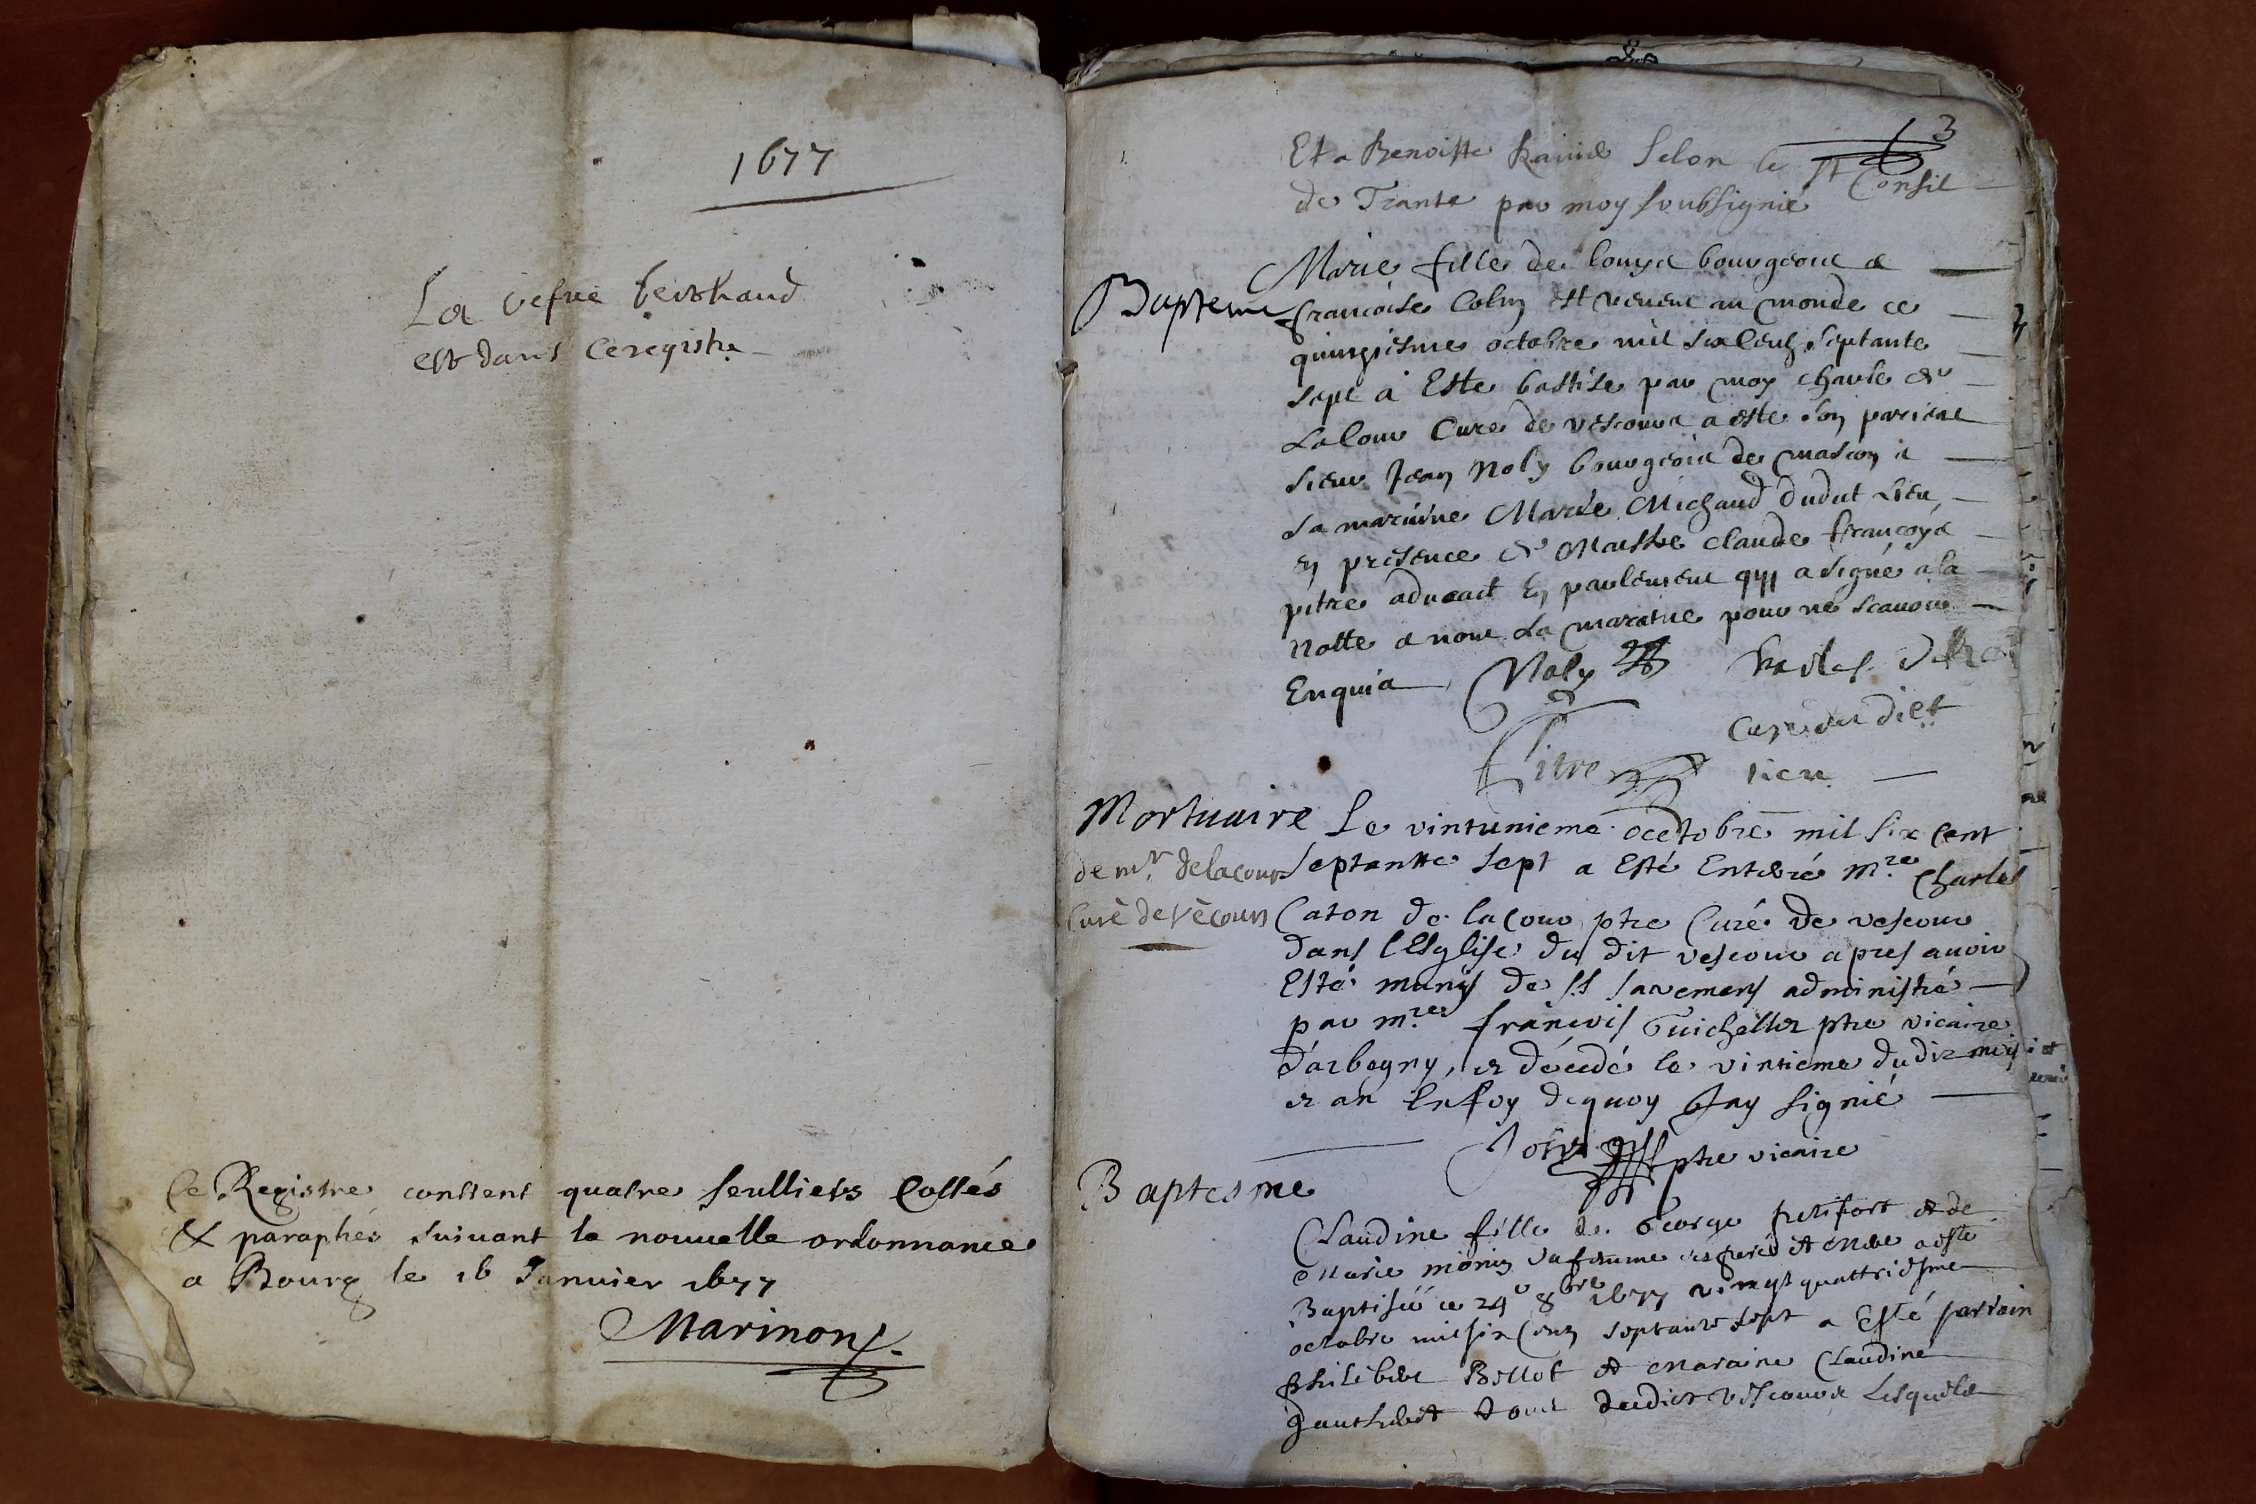 1677
La vefve berthaud
est dans ce registre
Ce Registre contient quatre feulliets Cottés
& paraphés suivant la nouvelle ordonnance
a Bourg le 16 Janvier 1677
Marinon
3
Et a Benoiste Ravid selon le st Consil
de Trante par moy soubsignie
Marie fille de Louys bourgeois &
Bapteme francoise Colin est venue au monde ce
quinziesme octobre mil six Centz septante
sept a Este bastise par moy charle de
Lacour Cure de vescours a este son pariene
sieur Jean Noly bourgeois de mascon &
sa maraine Marie Michaud dudut lieu
en presence de Maistre claude francoys
pitre advocact En parlement qui a signé a la
notte & non la maraine pour ne scavoir
Enquis Noly
Curé du diet
Pitre lieu
Mortuaire Le vintunieme occtobre mil six cent
de mr. delacour septantte sept a Esté Enterré mre Charles
Curé de vécours Caton de lacour ptre Curé de vescour
dans l'Esglise du dit vescour apres avoir
Esté munis de ss sacremens administré
par mre francois Guichellet ptre vicaire
d'arbegny, et décédé le vintieme du dit mois
et an Enfoy dequoy J'ay signié
ptre vicaire
Baptesme
Claudine fille de George petifort et de
Marie monin sa femme
Baptiseé ce 24e 8bre 1677 vingt quattriesme
octobre mil six Cens septante sept a Esté parrain
philibert Bellot et maraine Claudine
Gauthier tous dudict vescours Lesquels